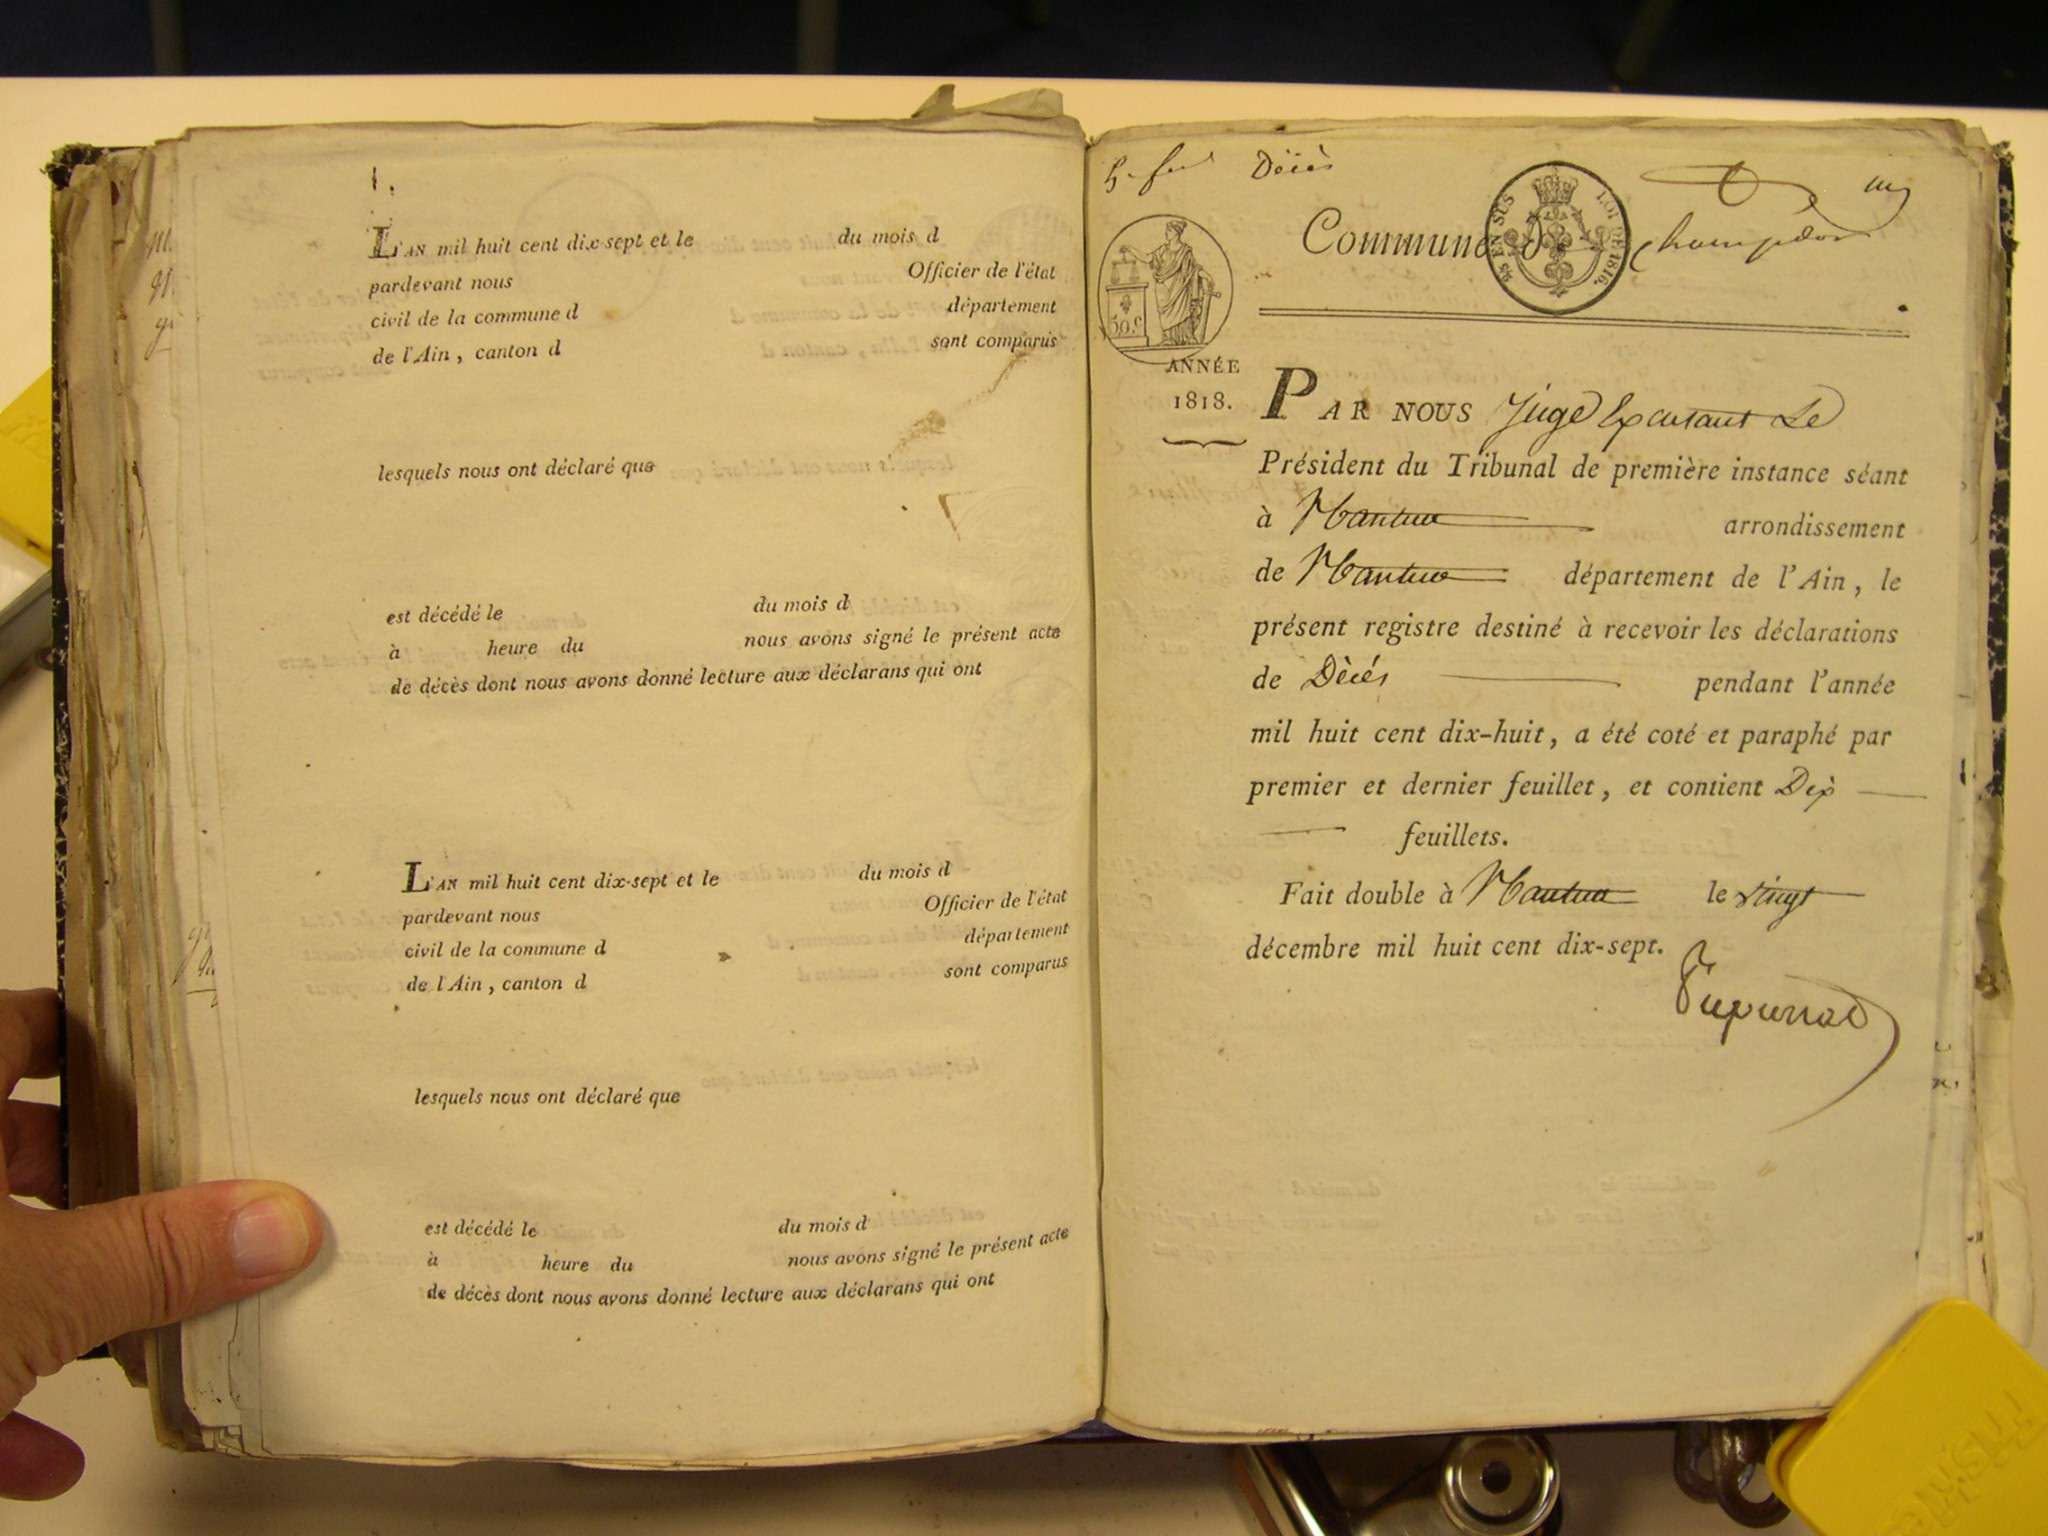 L'AN mil huit cent dix-sept et le du mois d
pardevant nous Officier de l'état
civil de la commune d département
de l'Ain, canton d sont comparus
lesquels nous ont déclaré que
est décédé le du mois d
à heure du nous avons signé le présent acte
de décès dont nous avons donné lecture aux déclarans qui ont
L'AN mil huit cent dix-sept et le du mois d
pardevant nous Officier de l'état
civil de la commune d département
de l'Ain, canton d sont comparus
lesquels nous ont déclaré que
est décédé le du mois d
à heure du nous avons signé le présent acte
de décès dont nous avons donné lecture aux déclarans qui ont
Décès
25 EN SUS LOI DE 1816.
Commune d Champdor
50 C.
ANNÉE
1818.
PAR NOUS Juge Expensant Le
Président du Tribunal de première instance séant
à Nantua arrondissement
de Nantua département de l'Ain, le
présent registre destiné à recevoir les déclarations
de Décés pendant l'année
mil huit cent dix-huit, a été coté et paraphé par
premier et dernier feuillet, et contient Dix
feuillets.
Fait double à Nantua le vingt
décembre mil huit cent dix-sept.